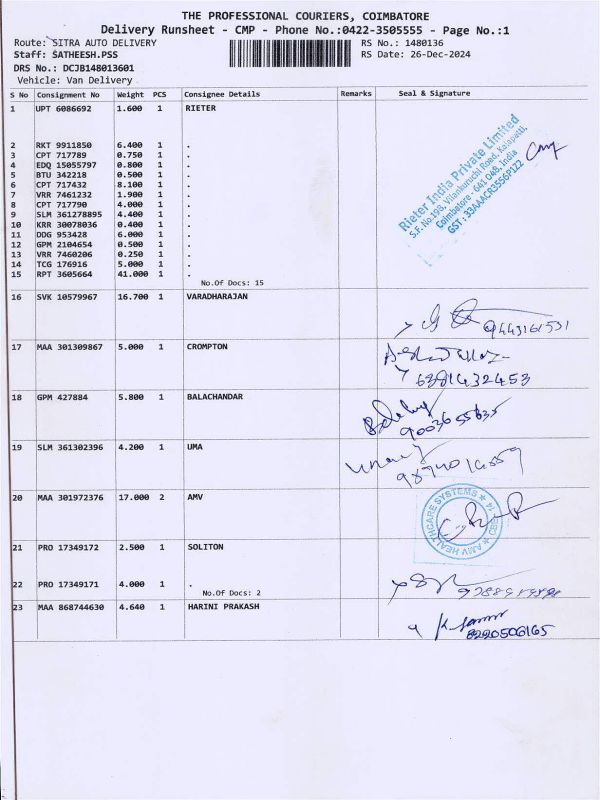 THE PROFESSIONAL COURIERS, COIMBATORE
Delivery Runsheet - CMP - Phone No.:0422-3505555 - Page No.:1
Route: SITRA AUTO DELIVERY
Staff: SATHEESH.PSS
DRS No.: DCJB148013601
Vehicle: Van Delivery
RS No.: 1480136
RS Date: 26-Dec-2024
S No Consignment No Weight PCS Consignee Details Remarks Seal & Signature
1 UPT 6086692 1.600 1 RIETER
2 RKT 9911850 6.400 1 .
3 CPT 717789 0.750 1 .
4 EDQ 15055797 0.800 1 .
5 BTU 342218 0.500 1 .
6 CPT 717432 8.100 1 .
7 VRR 7461232 1.900 1 .
8 CPT 717790 4.000 1 .
9 SLM 361278895 4.400 1 .
10 KRR 30078036 0.400 1 .
11 DDG 953428 6.000 1 .
12 GPM 2104654 0.500 1 .
13 VRR 7460206 0.250 1 .
14 TCG 176916 5.000 1 .
15 RPT 3605664 41.000 1 .
No.Of Docs: 15
Rieter India Private Limited
S.F. No.193, Vilankuruchi Road, Kalapatti,
Coimbatore - 641 048, India
GST : 33AAACR3556P1Z2
16 SVK 10579967 16.700 1 VARADHARAJAN
9443161531
17 MAA 301309867 5.000 1 CROMPTON
6381432453
18 GPM 427884 5.800 1 BALACHANDAR
9003655835
19 SLM 361302396 4.200 1 UMA
20 MAA 301972376 17.000 2 AMV
AMV HEALTHCARE SYSTEMS
21 PRO 17349172 2.500 1 SOLITON
22 PRO 17349171 4.000 1 .
No.Of Docs: 2
23 MAA 868744630 4.640 1 HARINI PRAKASH
8220506165